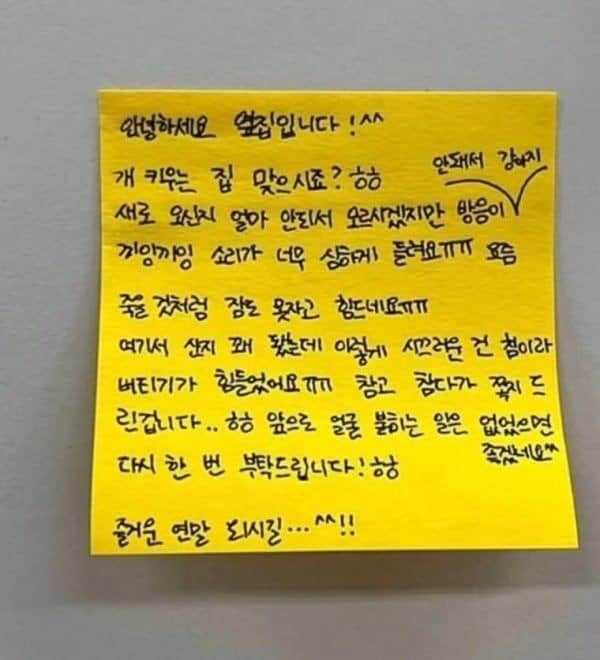 안녕하세요 옆집입니다!^^
개 키우는 집 맞으시죠? ㅎㅎ
안돼서 강아지
새로 오신지 얼마 안되서 모르시겠지만 방음이
끼잉끼잉 소리가 너무 심하게 들려요ㅠㅠ 요즘
죽을 것처럼 잠도 못자고 힘드네요ㅠㅠ
여기서 산지 꽤 됐는데 이렇게 시끄러운 건 첨이라
버티기가 힘들었어요ㅠㅠ 참고 참다가 쪽지 드
린겁니다.. ㅎㅎ 앞으로 얼굴 붉히는 일은 없었으면
좋겠네요^^
다시 한 번 부탁드립니다!ㅎㅎ
즐거운 연말 되시길...^^!!